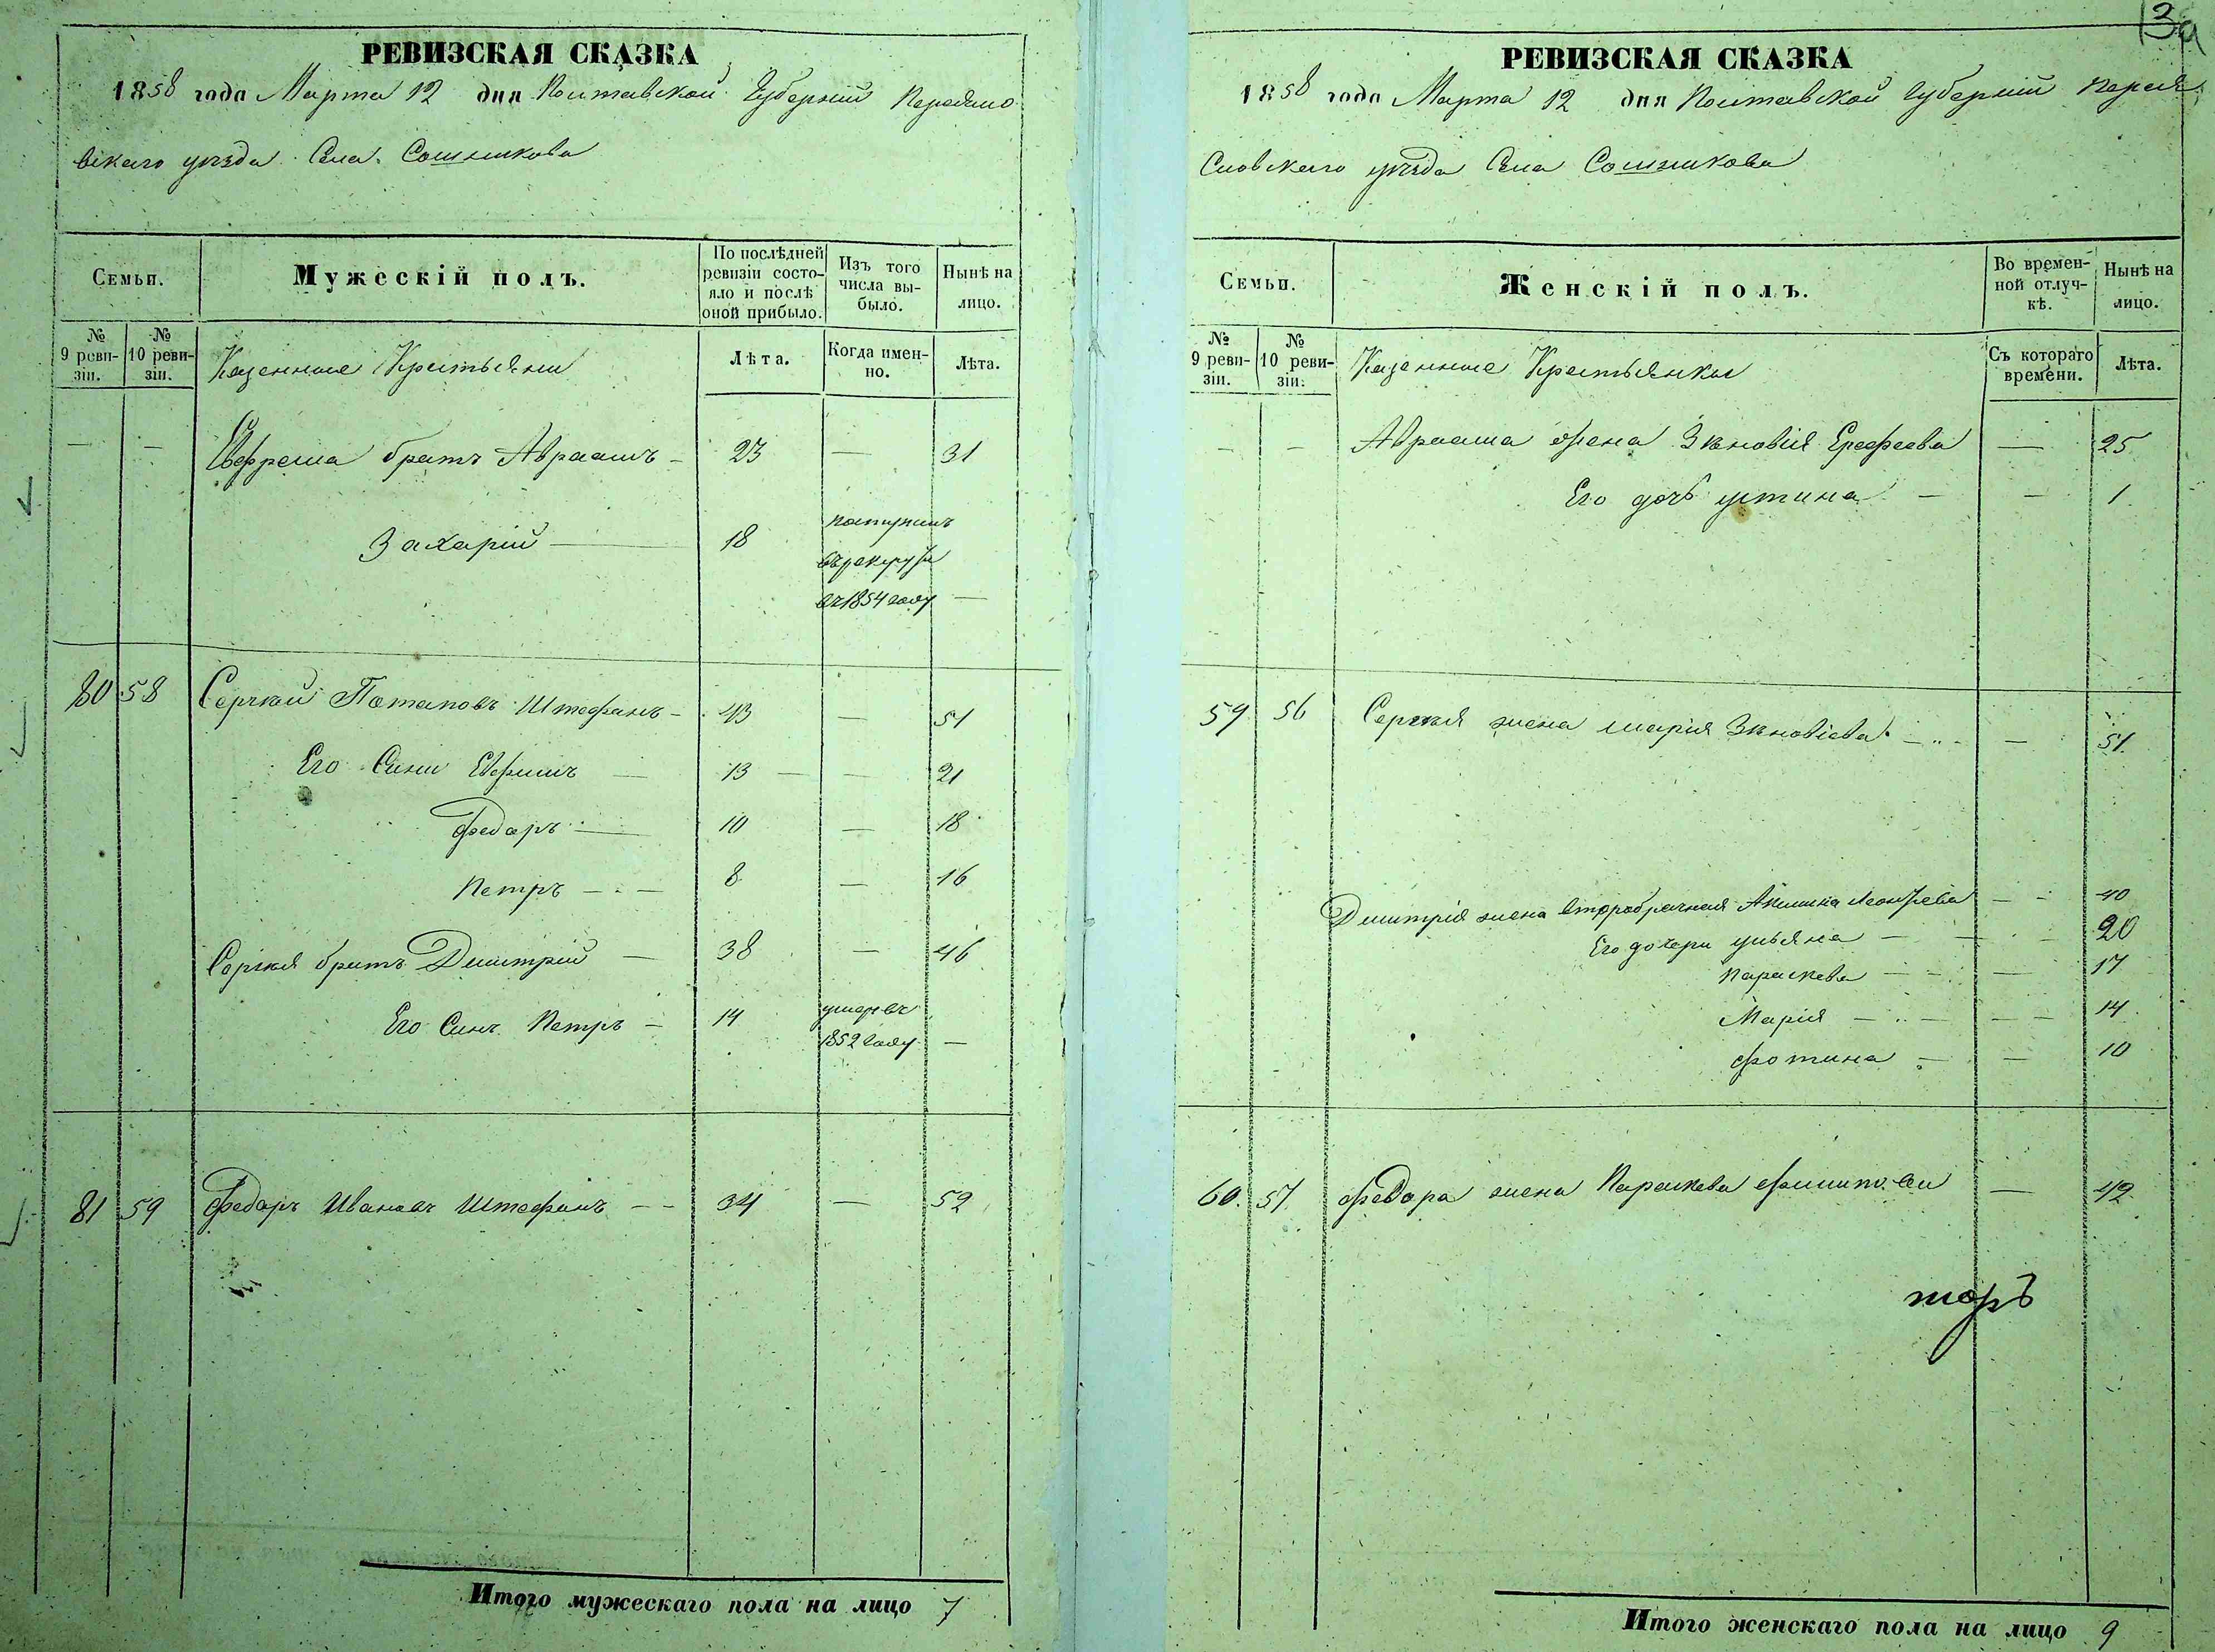 РЕВИЗСКАЯ СКАЗКА
1858 года Марта 12 дня Полтавской Губерніи Переясло
вскаго уѣзда Села Сошникова
Семьи.
Мужескій полъ.
По послѣдней ревизіи состояло и послѣ оной прибыло.
Изъ того числа выбыло.
Нынѣ на лицо.
№ 9 ревизіи.
№ 10 ревизіи.
Казенные Крестьяни
Лѣта.
Когда именно.
Лѣта.
— — Евфрема братъ Авраамъ — 23 — 31
Захарій — 18 поступилъ
въ рекруты
въ 1854 году —
80 58 Сергій Потаповъ Штефанъ — 43 — 51
Его Сини Евфимъ — 13 — — 21
Федоръ — 10 — 18
Петръ — 8 — 16
Сергія братъ Димитрій — 38 — 46
Его Синъ Петръ — 14 умеръ въ
1852 году —
81 59 Федоръ Ивановъ Штефанъ — 34 — 52
Итого мужескаго пола на лицо 7
13
РЕВИЗСКАЯ СКАЗКА
1858 года Марта 12 дня Полтавской Губерніи Перея
словскаго уѣзда Села Сошникова
Семьи.
Женскій полъ.
Во временной отлучкѣ.
Нынѣ на лицо.
№ 9 ревизіи.
№ 10 ревизіи.
Казенные Крестьянки
Съ котораго времени.
Лѣта.
— — Авраама жена Зѣновія Ерофеева — 25
Его дочь устина — — 1
59 56 Сергія жена марія Зѣновіева — — 51
Димитрія жена второбрачная Акилина Леонтьева — 40
Его дочери ульяна — 20
Параскева — 17
Марія — 14
Фотина — 10
60 57 Федора жена Параскева — 42
Итого женскаго пола на лицо 9